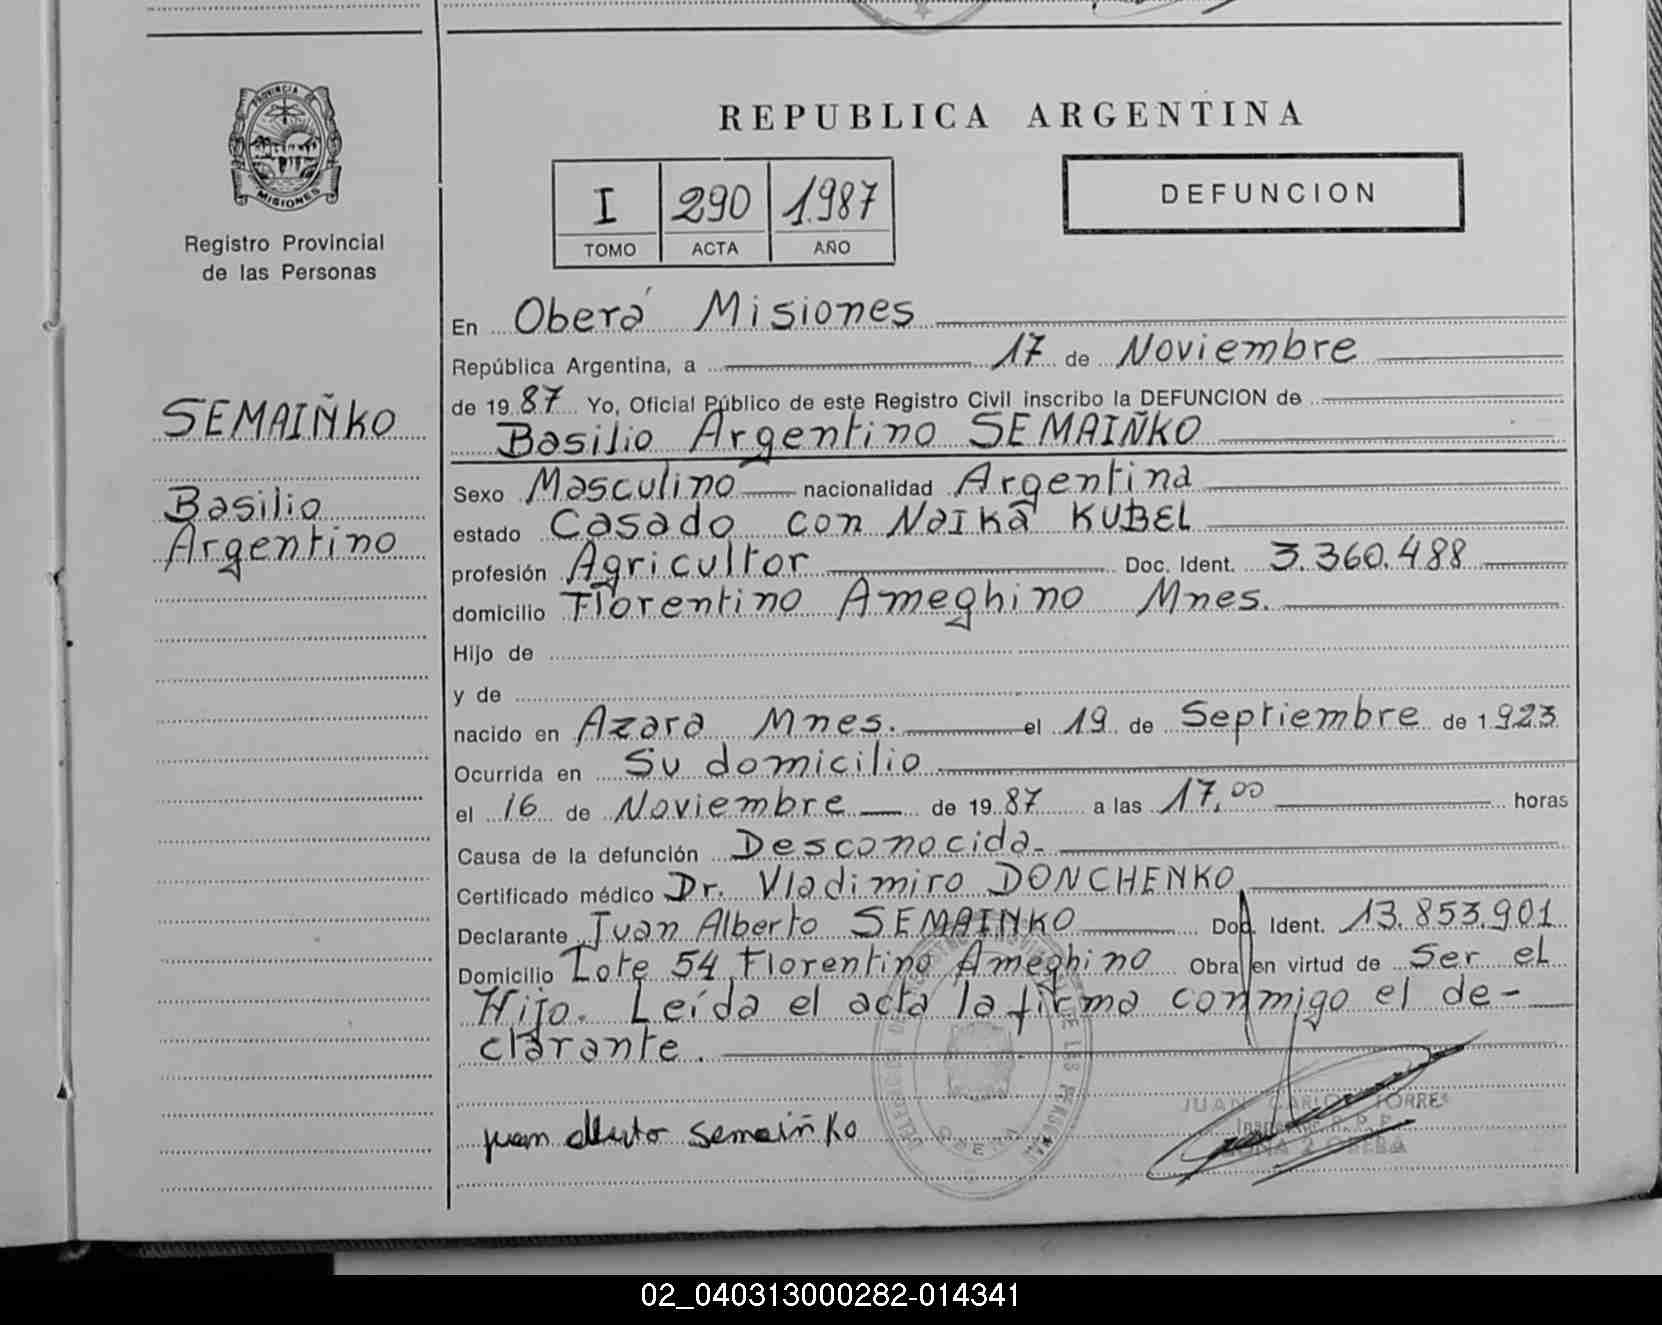 PROVINCIA DE
MISIONES
Registro Provincial
de las Personas
SEMAIÑKO
Basilio
Argentino
REPUBLICA ARGENTINA
I 290 1987
TOMO ACTA AÑO
DEFUNCION
En Oberá Misiones
República Argentina, a 17 de Noviembre
de 1987 Yo, Oficial Público de este Registro Civil inscribo la DEFUNCION de
Basilio Argentino SEMAIÑKO
Sexo Masculino nacionalidad Argentina
estado Casado con NaIka KUBEL
profesión Agricultor Doc. Ident. 3.360.488
domicilio Florentino Ameghino Mnes.
Hijo de
y de
nacido en Azara Mnes. el 19 de Septiembre de 1923
Ocurrida en Su domicilio
el 16 de Noviembre de 1987 a las 17,00 horas
Causa de la defunción Desconocida-
Certificado médico Dr. Vladimiro DONCHENKO
Declarante Juan Alberto SEMAIÑKO Doc. Ident. 13.853.901
Domicilio Lote 54 Florentino Ameghino Obra en virtud de Ser el
Hijo. Leída el acta la firma conmigo el de-
clarante.
juan alberto semaiñko
JUAN CARLOS TORRES
ZONA 2 OBERA
02_040313000282-014341